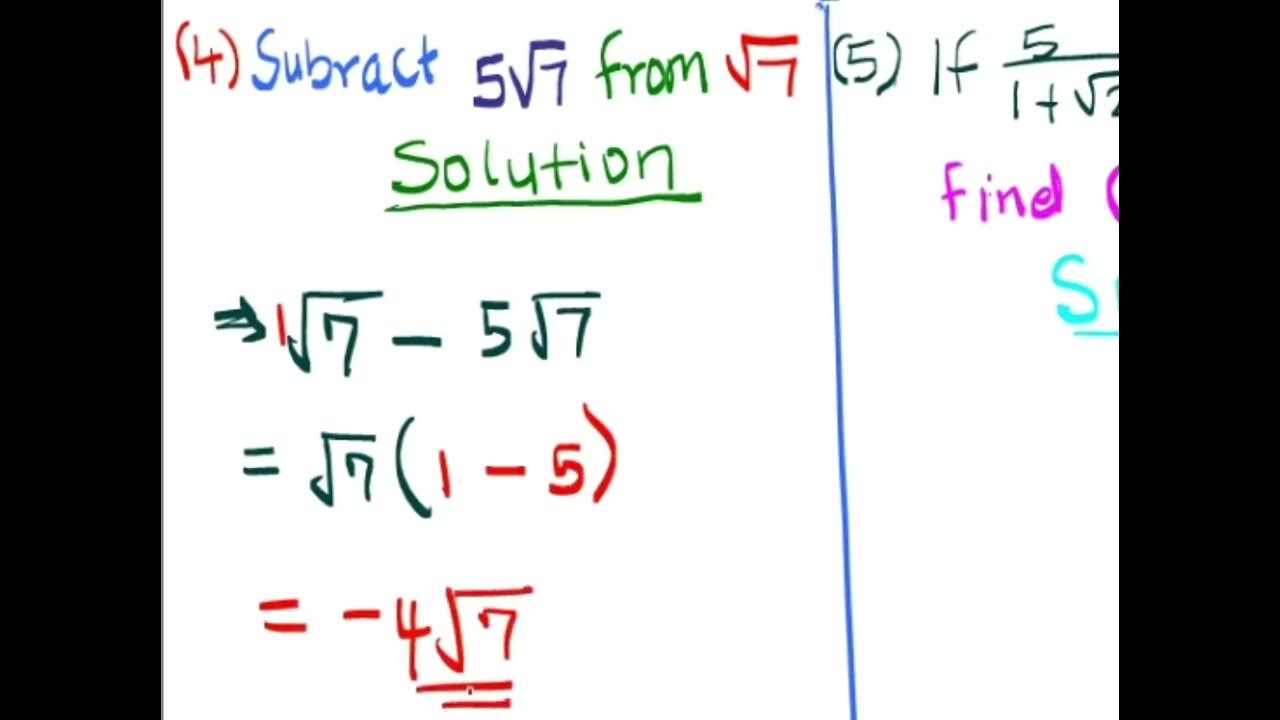 (4) Subract 5√7 from √7
Solution
⇒ 1√7 − 5√7
= √7(1 − 5)
= −4√7
(5) If 5/(1+√2
find (
S